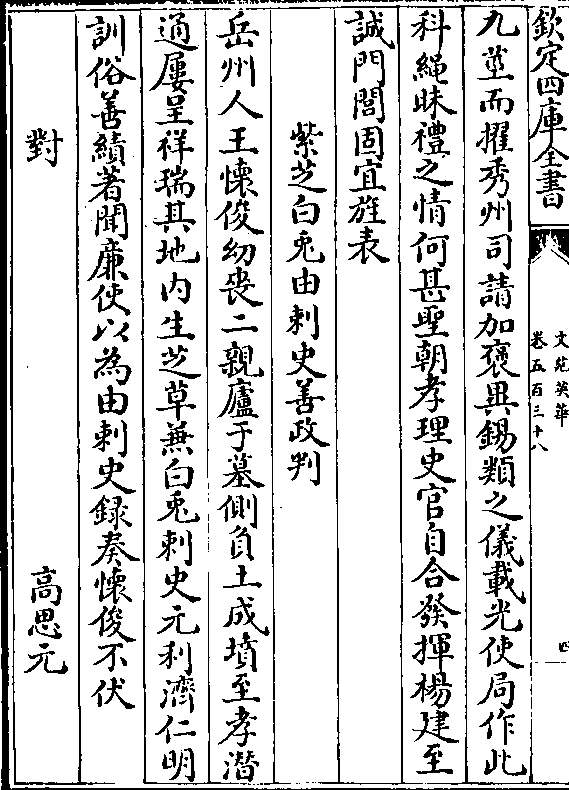 欽定四庫全書
文苑英華
卷五百三十八
四
九莖而擢秀州司請加褒異錫類之儀載光使局作此
科繩昧禮之情何甚聖朝孝理史官自合發揮楊建至
誠門閭固宜旌表
紫芝白兎由刺史善政判
岳州人王懷俊幼喪二親廬于墓側負土成墳至孝潛
通屢呈祥瑞其地内生芝草兼白兎刺史元利濟仁明
訓俗善績著聞廉使以為由刺史録奏懷俊不伏
對
高思元